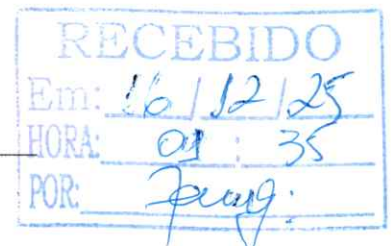 RECEBIDO
Em: 16 / 12 / 25
HORA: 09 : 35
POR: